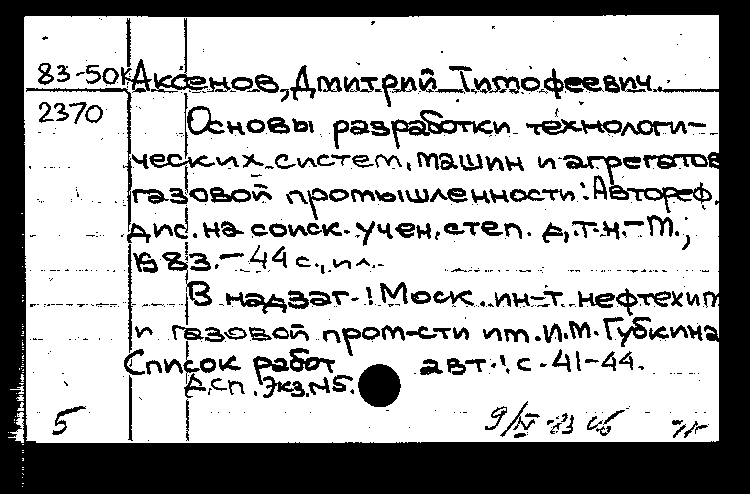 83-50к Аксенов, Дмитрий Тимофеевич.
2370 Основы разработки технологи-
ческих систем, машин и агрегатов
газовой промышленности: Автореф.
дис. на соиск. учен. степ. д.т.н. - М.,
1983. - 44 с., ил.
В надзаг.: Моск. ин-т нефтехим
и газовой пром-сти им. И.М. Губкина
Список работ авт.: с. 41-44.
Дсп. Экз. N5.
5 9/IV-83